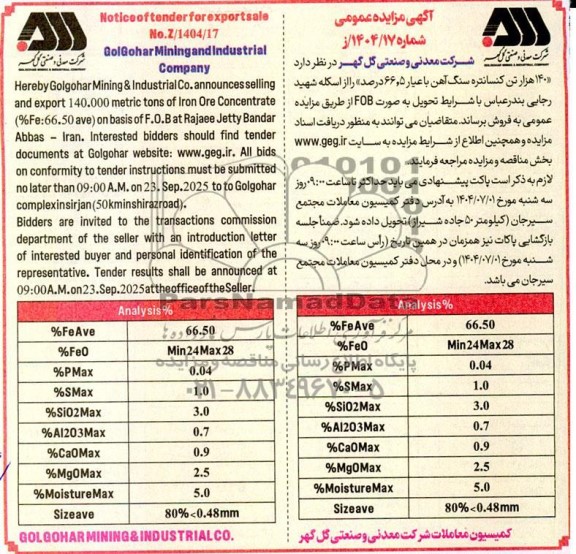 Notice of tender for export sale
No.Z/1404/17
GolGohar Mining and Industrial
Company
Hereby Golgohar Mining & Industrial Co. announces selling
and export 140.000 metric tons of Iron Ore Concentrate
(%Fe:66.50 ave) on basis of F.O.B at Rajaee Jetty Bandar
Abbas – Iran. Interested bidders should find tender
documents at Golgohar website: www.geg.ir. All bids
on conformity to tender instructions must be submitted
no later than 09:00 A.M. on 23. Sep.2025 to to Golgohar
complex in sirjan (50km in shiraz road).
Bidders are invited to the transactions commission
department of the seller with an introduction letter
of interested buyer and personal identification of the
representative. Tender results shall be announced at
09:00 A.M. on 23.Sep.2025 at the office of the Seller.
Analysis%
%FeAve 66.50
%FeO Min24Max28
%PMax 0.04
%SMax 1.0
%SiO2Max 3.0
%Al2O3Max 0.7
%CaOMax 0.9
%MgOMax 2.5
%MoistureMax 5.0
Sizeave 80%<0.48mm
GOLGOHAR MINING & INDUSTRIAL CO.
آگهی مزایده عمومی
شماره ۱۴۰۴/۱۷/ز
شرکت معدنی و صنعتی گل گهر در نظر دارد
«۱۴۰ هزار تن کنسانتره سنگ آهن با عیار ۶۶,۵ درصد» را از اسکله شهید
رجایی بندرعباس با شرایط تحویل به صورت FOB از طریق مزایده
عمومی به فروش برساند. متقاضیان می توانند به منظور دریافت اسناد
مزایده و همچنین اطلاع از شرایط مزایده به سایت www.geg.ir
بخش مناقصه و مزایده مراجعه فرمایند.
لازم به ذکر است پاکت پیشنهادی می باید حداکثر تا ساعت ۰۹:۰۰ روز
سه شنبه مورخ ۱۴۰۴/۰۷/۰۱ به آدرس دفتر کمیسیون معاملات مجتمع
سیرجان (کیلومتر ۵۰ جاده شیراز) تحویل داده شود. ضمناً جلسه
بازگشایی پاکات نیز همزمان در همین تاریخ (راس ساعت ۰۹:۰۰ روز سه
شنبه مورخ ۱۴۰۴/۰۷/۰۱) و در محل دفتر کمیسیون معاملات مجتمع
سیرجان می باشد.
Analysis%
%FeAve 66.50
%FeO Min24Max28
%PMax 0.04
%SMax 1.0
%SiO2Max 3.0
%Al2O3Max 0.7
%CaOMax 0.9
%MgOMax 2.5
%MoistureMax 5.0
Sizeave 80%<0.48mm
کمیسیون معاملات شرکت معدنی و صنعتی گل گهر
ParsNamadData
پایگاه اطلاع رسانی مناقصه و مزایده
۰۲۱-۸۸۳۴۹۶۷۰-۵